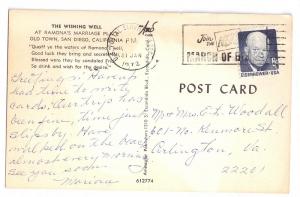 THE WISHING WELL
AT RAMONA'S MARRIAGE PLACE
OLD TOWN, SAN DIEGO, CALIFORNIA
"Quaff ye the waters of Ramona's well,
Good luck they bring and secrets tell,
Blessed were they by sandaled Friar,
So drink and wish for thy desire."
Greetings: Haven't
had time to write
cards. Our trip has
been fine, time just
slips by. Have
been on the beach
almost every morning
See you soon
Marione
PM
JAN
1972
Join
THE
MARCH OF
EISENHOWER·USA
POST CARD
Mr & Mrs. E. L. Woodall
601-No. Kenmore St
Arlington, Va.
22201
612774